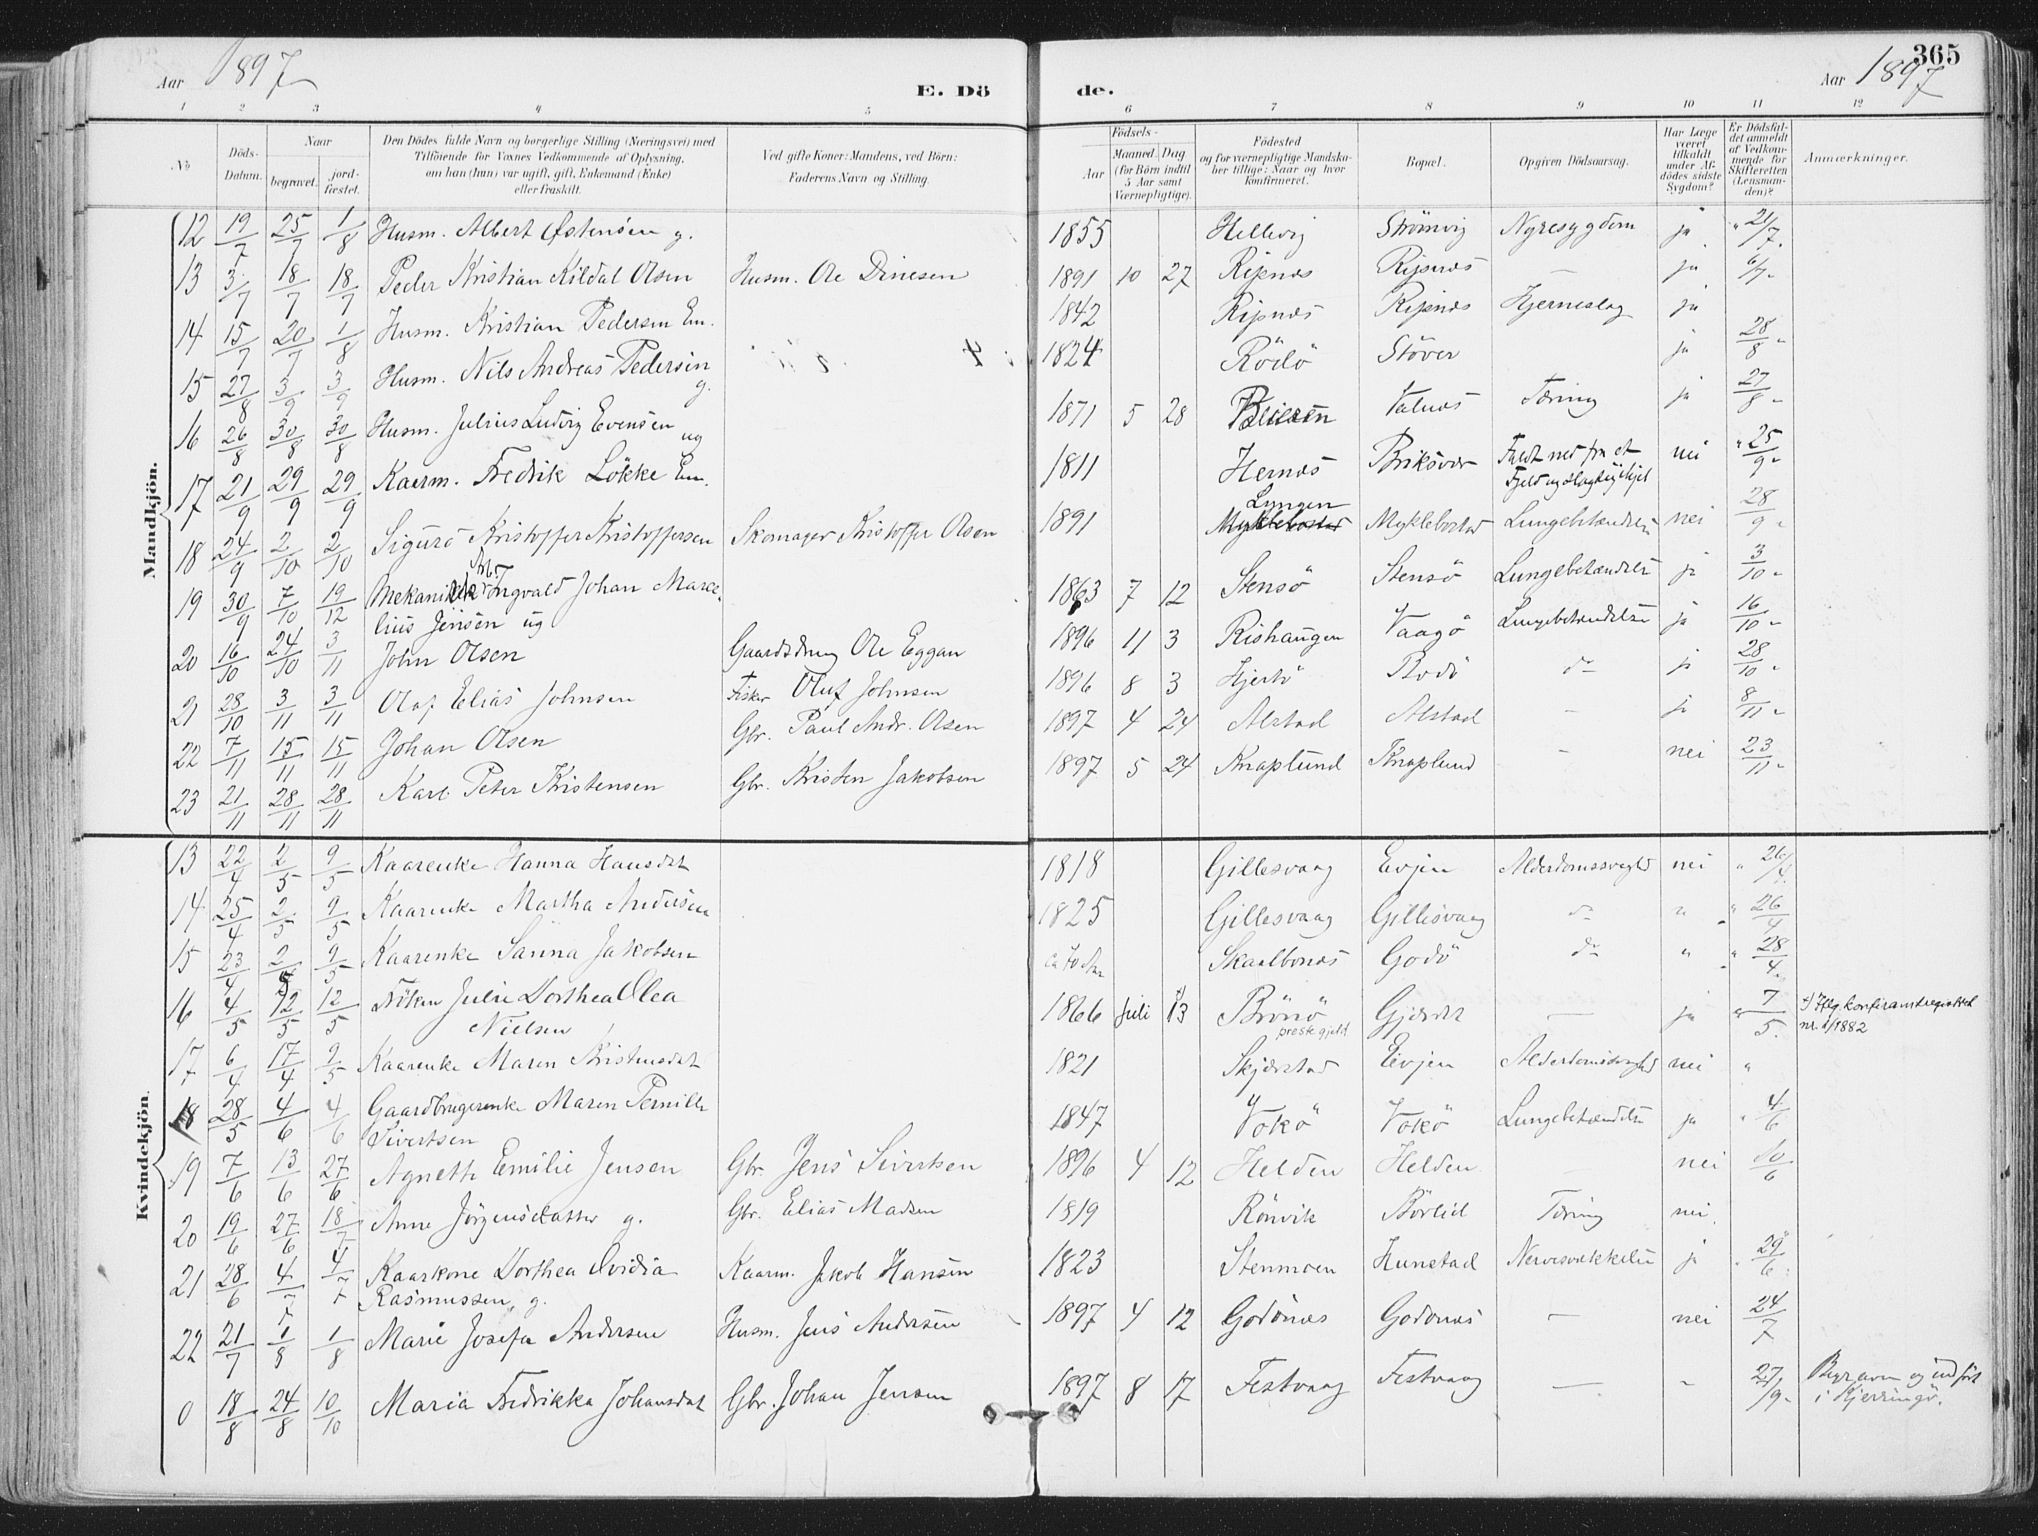 365
Aar 1897
E. Dö
de.
Aar 1897
1 2 3 4 5 6 7 8 9 10 11 12
No
Döds-Datum.
Naar
begravet.
jord-fæstet.
Den Dödes fulde Navn og borgerlige Stilling (Næringsvei) med
Tilföiende for Voxnes Vedkommende af Oplysning,
om han (hun) var ugift, gift, Enkemand (Enke)
eller fraskilt.
Ved gifte Koner: Mandens, ved Börn:
Faderens Navn og Stilling.
Födsels-
Aar
Maaned. Dag
(for Börn indtil
5 Aar samt
Værnepligtige).
Födested
og for værnepligtige Mandska-
ber tillige: Naar og hvor
konfirmeret.
Bopæl.
Opgiven Dödsaarsag.
Har Læge
været
tilkaldt
under Af-
dödes sidste
Sygdom?
Er Dödsfal-
det anmeldt
af Vedkom-
mende for
Skifteretten
(Lensman-
den)?
Anmærkninger.
Mandkjön.
12 19/7 25/7 1/8 Husm. Albert Østensen g. 1855 Hellvig Strömvig Nyresygdom ja " 21/7.
13 3/7 18/7 18/7 Peder Kristian Kildal Olsen Husm. Ole Dinesen 1891 10 27 Ripnæs Ripnæs — ja 6/7-
14 15/7 20/7 1/8 Husm. Kristian Pedersen Em. 1842 Ripnæs Ripnæs Hjerneslag ja
15 27/8 3/9 3/9 Husm. Nils Andreas Pedersen g. 1824 Rödö Stöver ja 28/8 -
16 26/8 30/8 30/8 Husm. Julius Ludvig Evensen ug 1871 5 28 Beieren Valnæs Tæring ja 27/8 -
17 21/9 29/9 29/9 Kaarm. Fredrik Lökke Em. 1811 Hernæs Briksvær Faldt ned fra et
Fjeld og slog sig ihjel nei " 25/9 -
18 24/9 2/10 2/10 Sigurd Kristoffer Kristoffersen Skomager Kristoffer Olsen 1891 Lyngen Myklebostad Myklebostad Lungebetændelse nei 28/9 -
19 30/9 7/10 19/12 Mekanikk Arb. Ingvald Johan Marce-
lius Jensen ug 1863 7 12 Stensö Stensö Lungebetændelse ja 3/10 -
20 16/10 24/10 3/11 John Olsen Gaardsdreng Ole Eggan 1896 11 3 Rishaugen Vaagö Lungebetændelse ja 16/10 -
21 28/10 3/11 3/11 Olaf Elias Johnsen Fisker Oluf Johnsen 1896 8 3 Hjertö Bodö do ja 28/10 -
22 7/11 15/11 15/11 Johan Olsen Gbr. Paul Andr. Olsen 1897 4 24 Alstad Alstad — ja 8/11 -
23 21/11 28/11 28/11 Karl Peter Kristensen Gbr. Kristen Jakobsen 1897 5 24 Knaplund Knaplund - nei 23/11 -
Kvindekjön.
13 22/4 2/5 9/5 Kaarenke Hanna Hansdat 1818 Gillesvaag Evjen Alderdomssvaghd nei " 26/4.
14 25/4 2/5 9/5 Kaarenke Martha Andersen 1825 Gillesvaag Gillesvaag do " " 26/4
15 23/4 2/5 9/5 Kaarenke Sanna Jakobsen ca 70 Aar Skaalbones Godö do " " 28/4
16 4/5 12/5 12/5 Fröken Julie Dorthea Olea
Nielsen 1866 Juli 13 Brönö
prestegjeld Gjærdet — ja " 7/5. +) Iflg. konfirmantregistret
nr. 1/1882
17 6/4 17/4 9/5 Kaarenke Maren Kristensdat 1821 Skjerstad Evjen Alderdomssvaghd nei "
18 28/5 4/6 4/6 Gaardbrugerenke Maren Pernille
Sivertsen 1847 Vokö Vokö Lungebetændelse ja " 4/6
19 7/6 13/6 27/6 Agnethe Emilie Jensen Gbr. Jens Sivertsen 1896 4 12 Helden Helden — nei 10/6
20 19/6 27/6 18/7 Anne Jörgensdatter g. Gbr. Elias Madsen 1819 Rönvik Börlid Tæring nei
21 28/6 4/7 4/7 Kaarkone Dorthea Ovidia
Rasmussen, g. Kaarm. Jakob Hansen 1823 Stenmoen Hunstad Nervesvækkelse ja " 29/6
22 21/7 1/8 1/8 Marie Josefa Andersen Husm. Jens Andersen 1897 4 12 Godönæs Godönæs — nei 24/7
0 18/8 24/8 10/10 Maria Fredrikka Johansdat Gbr. Johan Jensen 1897 8 17 Festvaag Festvaag — - 27/9- Begraven og indfört
i Kjerringö.